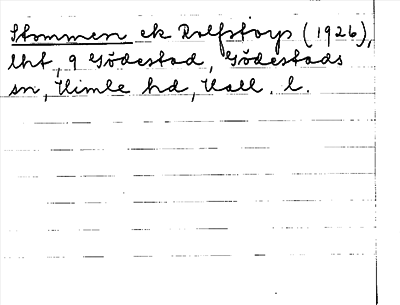 Stommen ek Rolfstorp (1926),
lht, 9 Gödestad, Gödestads
sn, Himle hd, Hall. l.